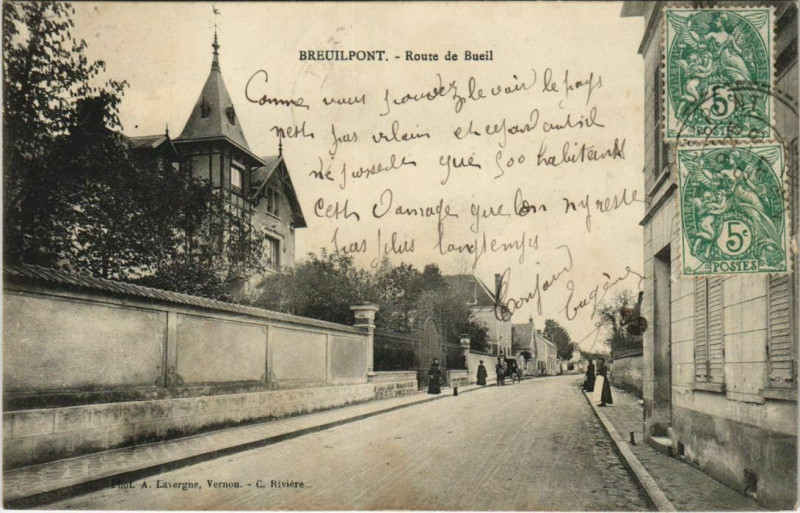 BREUILPONT. - Route de Bueil
Comme vous pouvez le voir le pays
nest pas vilain et cependant il
ne possede que 500 habitants
Cest Domage que lon ny reste
pas plus longtemps
Bonjour
Eugène
5c
POSTES
5c
POSTES
Phot. A. Lavergne, Vernon. - C. Rivière